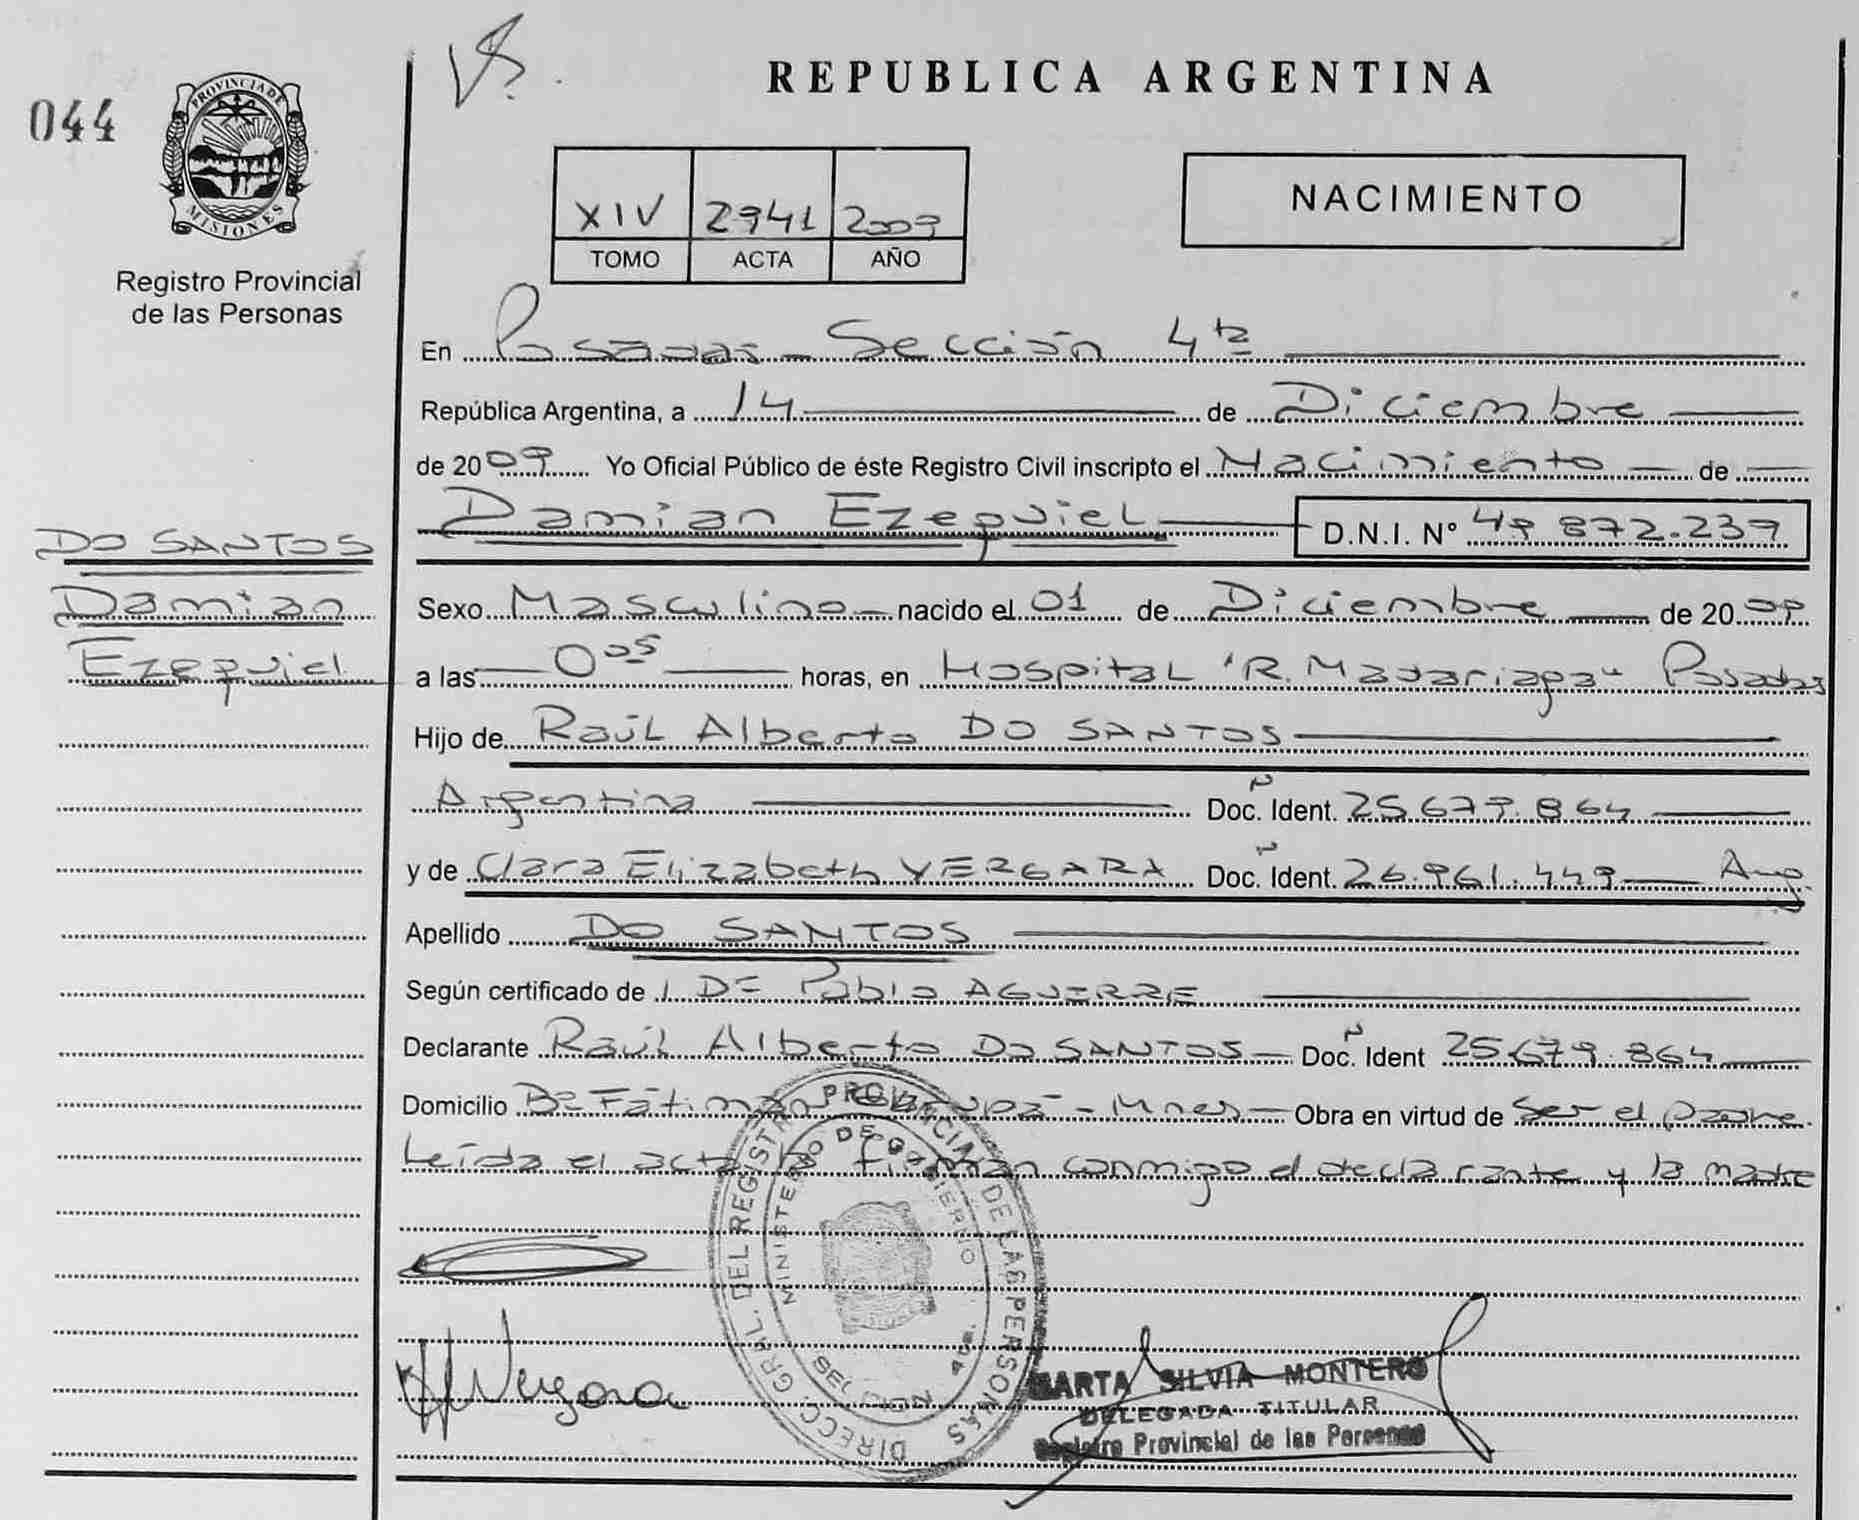 044
PROVINCIA DE
MISIONES
Registro Provincial
de las Personas
REPUBLICA ARGENTINA
XIV 2941 2009
TOMO ACTA AÑO
NACIMIENTO
En Posadas - Sección 4ta
República Argentina, a 14 de Diciembre
de 2009 Yo Oficial Público de éste Registro Civil inscripto el Nacimiento de
Damian Ezequiel D.N.I. Nº 49 872.239
DO SANTOS
Damian
Ezequiel
Sexo Masculino nacido el 01 de Diciembre de 2009
a las 0 05 horas, en Hospital "R. Madariaga" Posadas
Hijo de Raúl Alberto DO SANTOS
Argentina Doc. Ident. 25.679.864
y de Clara Elizabeth VERGARA Doc. Ident. 26.961.449 Arg.
Apellido DO SANTOS
Según certificado de Pablo AGUIRRE
Declarante Raúl Alberto DO SANTOS Doc. Ident 25.679.864
Domicilio Bº Fátima - Mnes Obra en virtud de ser el padre.
Leída el acta la firman conmigo el declarante y la madre
DIRECC. GRAL. DEL REGISTRO PROVINCIAL DE LAS PERSONAS
MINISTERIO DE GOBIERNO
SECCION 4ta.
Vergara
MARTA SILVIA MONTERO
DELEGADA TITULAR
Registro Provincial de las Personas